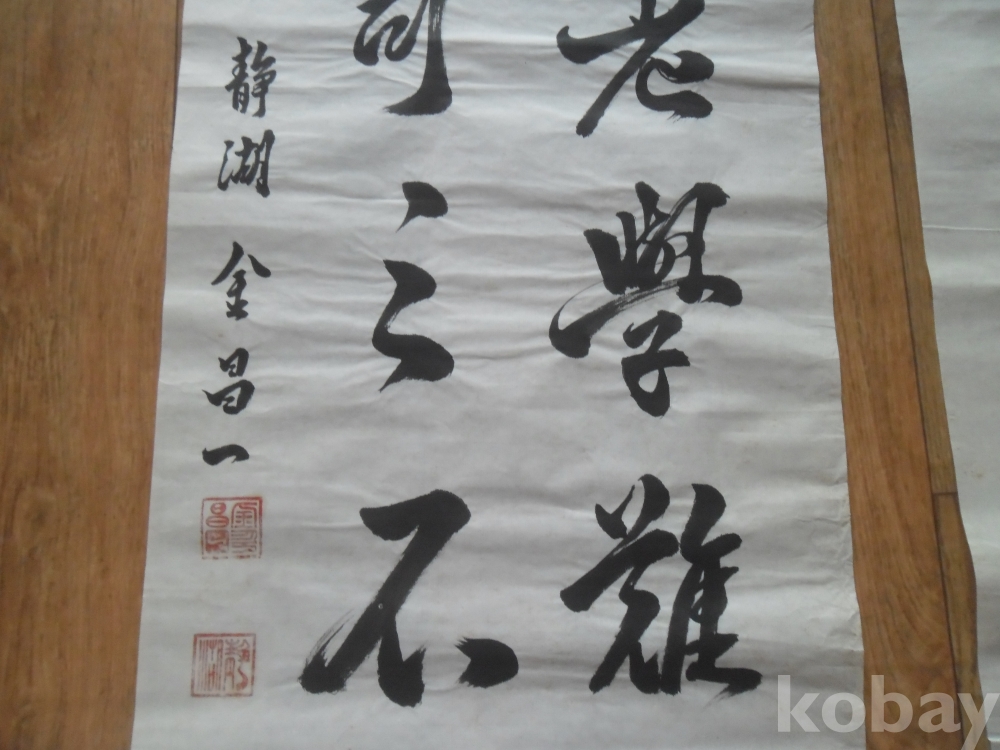 老學難
之不
靜湖 金昌一
靜湖
kobay